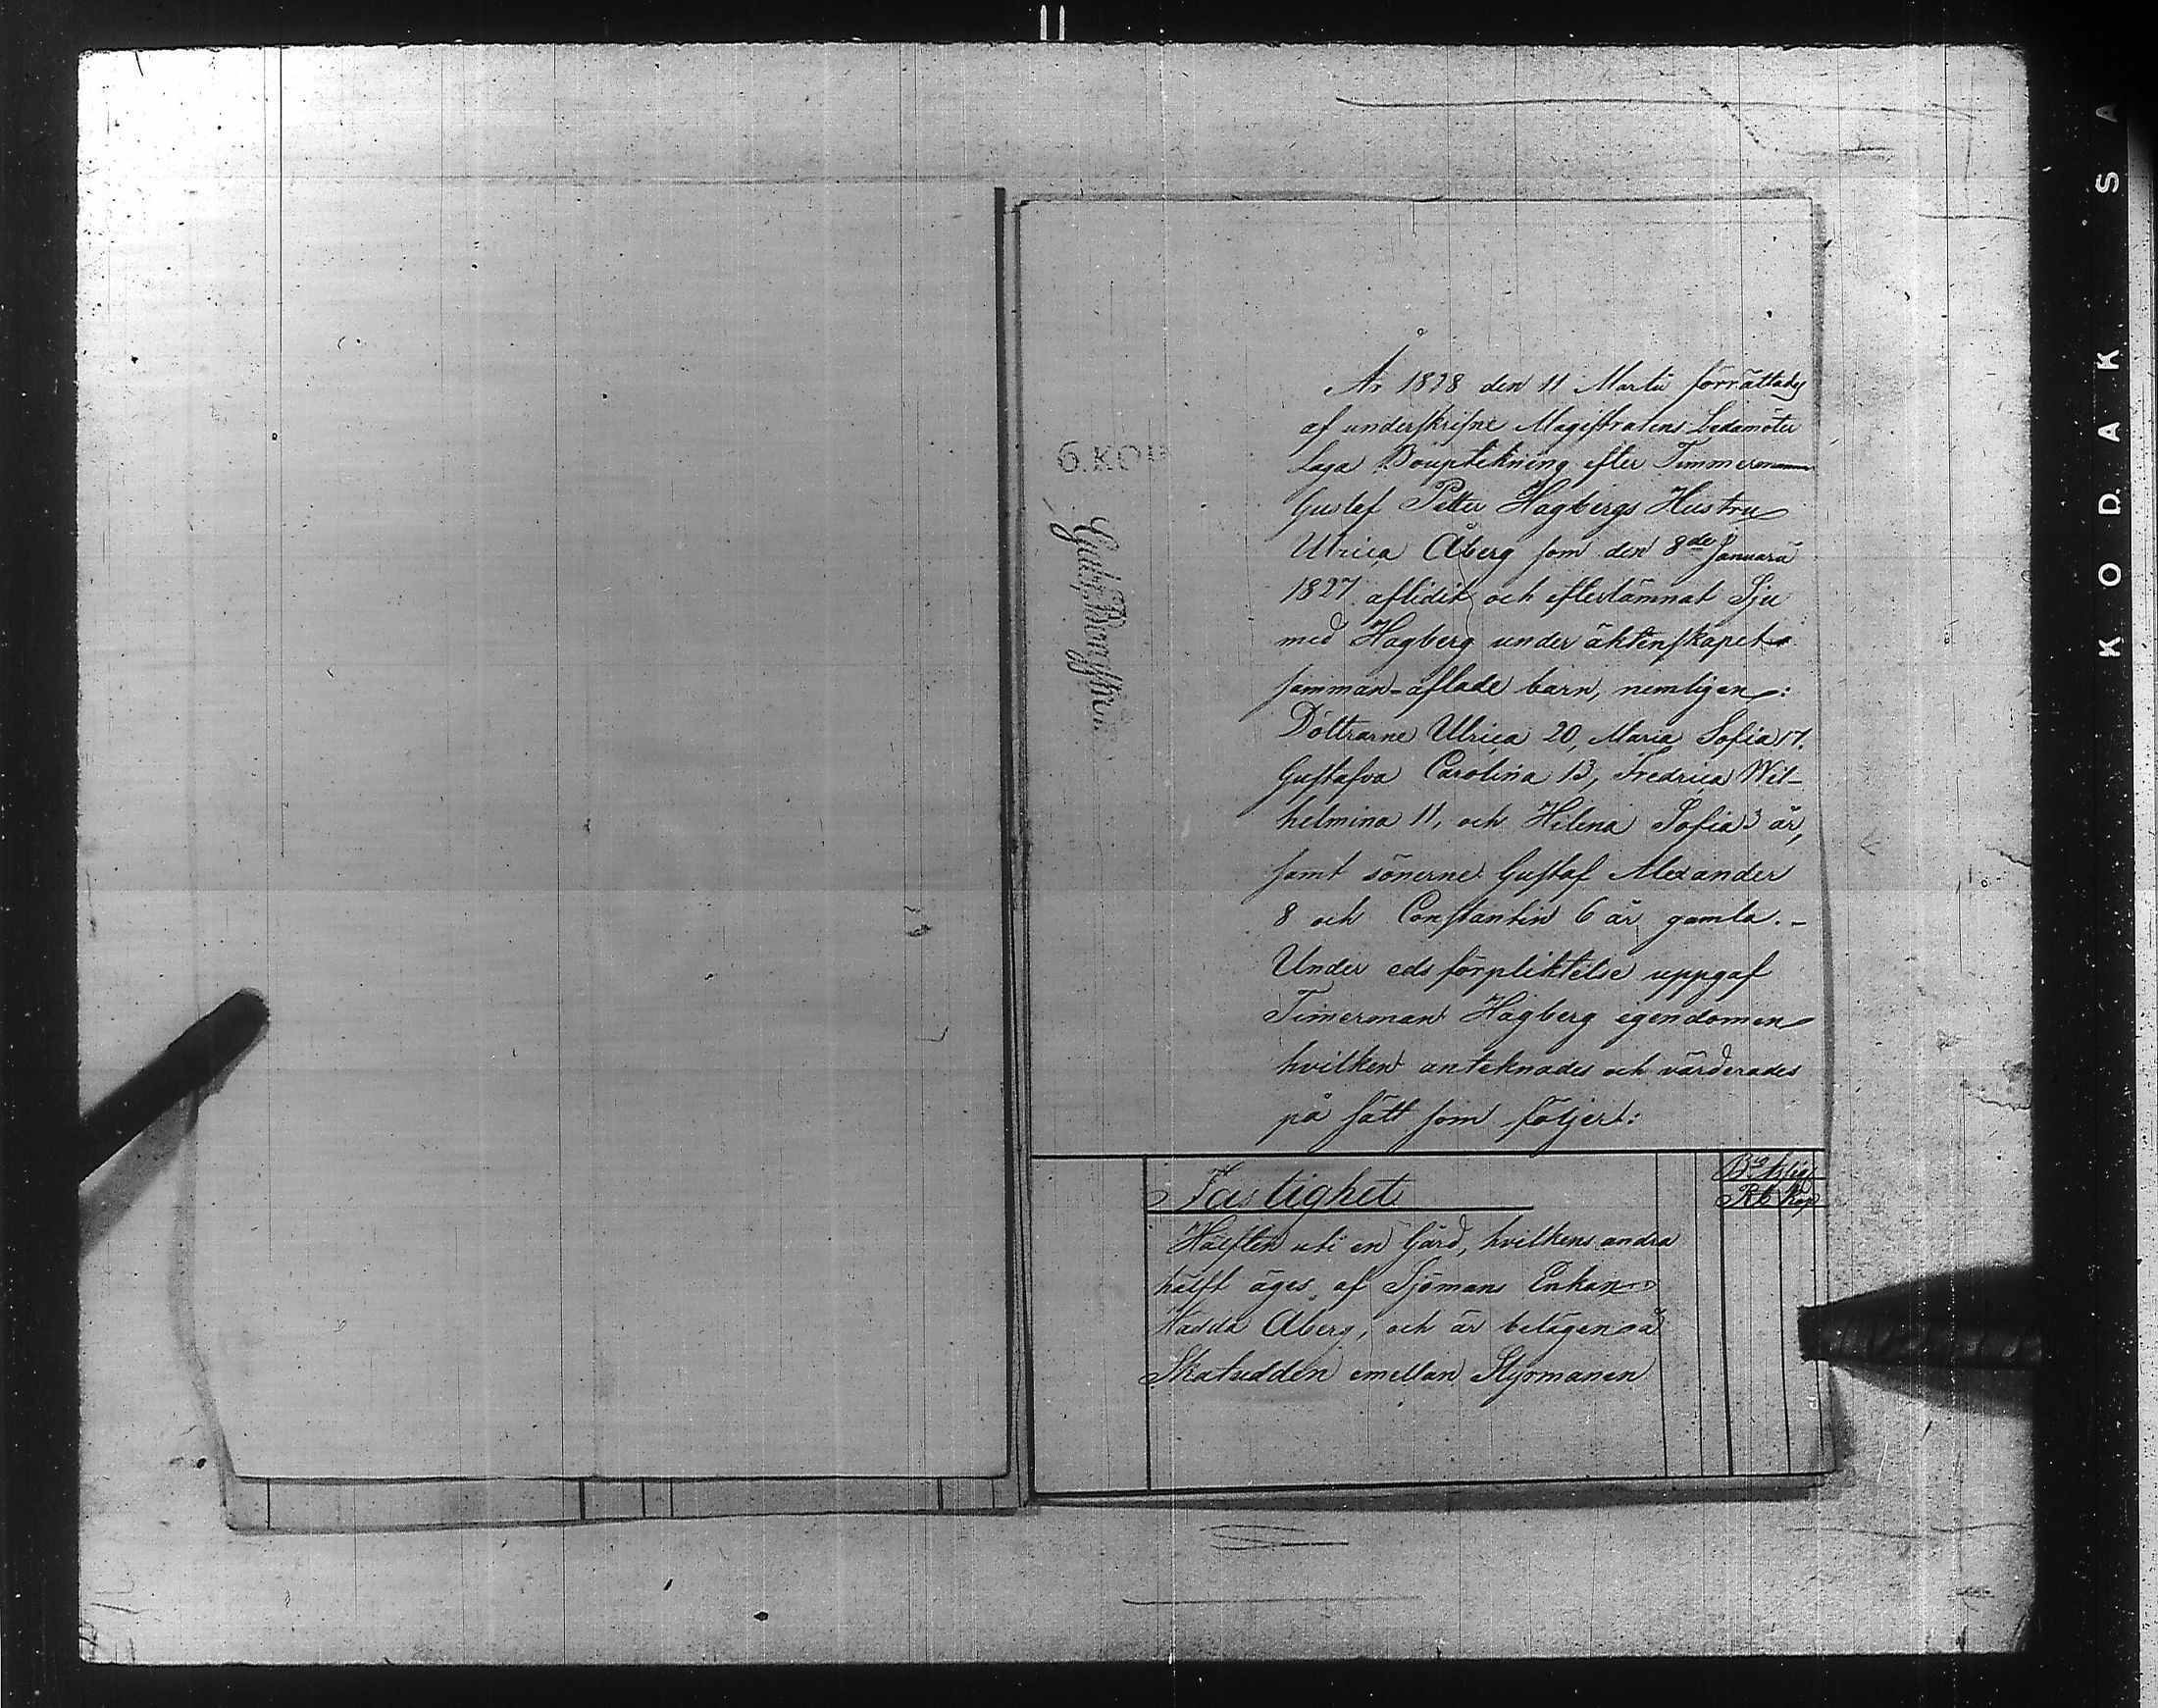 År 1828 den 11 Martii förrättades
af underskrifne Magistratens Ledamöter
Laga Bouptekning efter Timmerman
Gustaf Petter Hagbergs Hustru
Ulrica Åberg som den 8de Januarii
1827 aflidit och efterlämnat Sju
med Hagberg under äktenskapet
samman-aflade barn, nemligen:
Döttrarne Ulrica 20, Maria Sofia 17.
Gustafva Carolina 13, Fredrica Wil-
helmina 11, och Helena Sofia 3 år,
samt sönerne Gustaf Alexander
8 och Constantin 6 år gamla.-
Under eds förpliktelse uppgaf
Timerman Hagberg egendomen
hvilken anteknades och värderades
på sätt som följer:
6. KOP
Fastighet
Rb Kop
Hälften uti en Gård, hvilkens andra
hälft äges af Sjömans Enkan
Hedda Åberg, och är belägen å
Skatudden emellan Styrmanen
KODAK SA